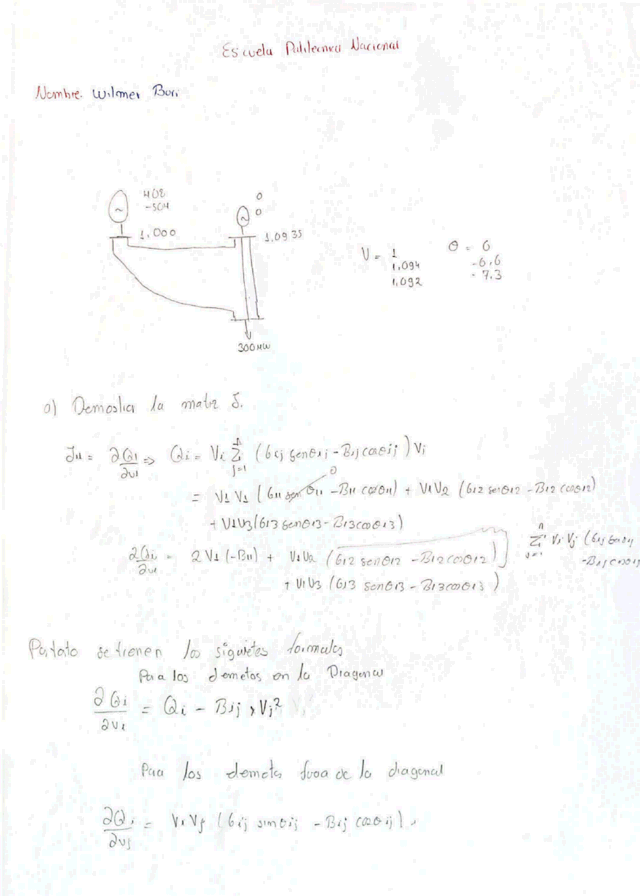 Escuela Politecnica Nacional
Nombre: Wilmer
402 0
-504 0
1.000 1.0935
V = 1 θ = 0
1,094 -6,6
1,092 -7.3
300 MW
a) Demostrar la matriz J.
J11 = ∂Q1/∂v1 ⇒ Qi = Vi Σ (Gij senθij - Bij cosθij) Vj
= V1 V1 (G11 sen θ11 - B11 cosθ11) + V1V2 (G12 senθ12 - B12 cosθ12)
+ V1V3 (G13 senθ13 - B13 cosθ13)
∂Qi/∂vi = 2 V1 (-B11) + V1V2 (G12 senθ12 - B12 cosθ12)
+ V1V3 (G13 senθ13 - B13 cosθ13)
Σ Vi Vj (Gij senθij
- Bij cosθij
Portato se tienen los siguietes formulas
Para los elemetos en la Diagonal
∂Qi/∂vi = Qi - Bij Vj²
Para los elemetos fuera de la diagonal
∂Qi/∂vj = Vi Vj (Gij sinθij - Bij cosθij).